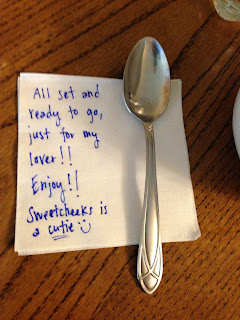 All set and
ready to go,
just for my
lover!!
Enjoy!!
Sweetcheeks is
a cutie